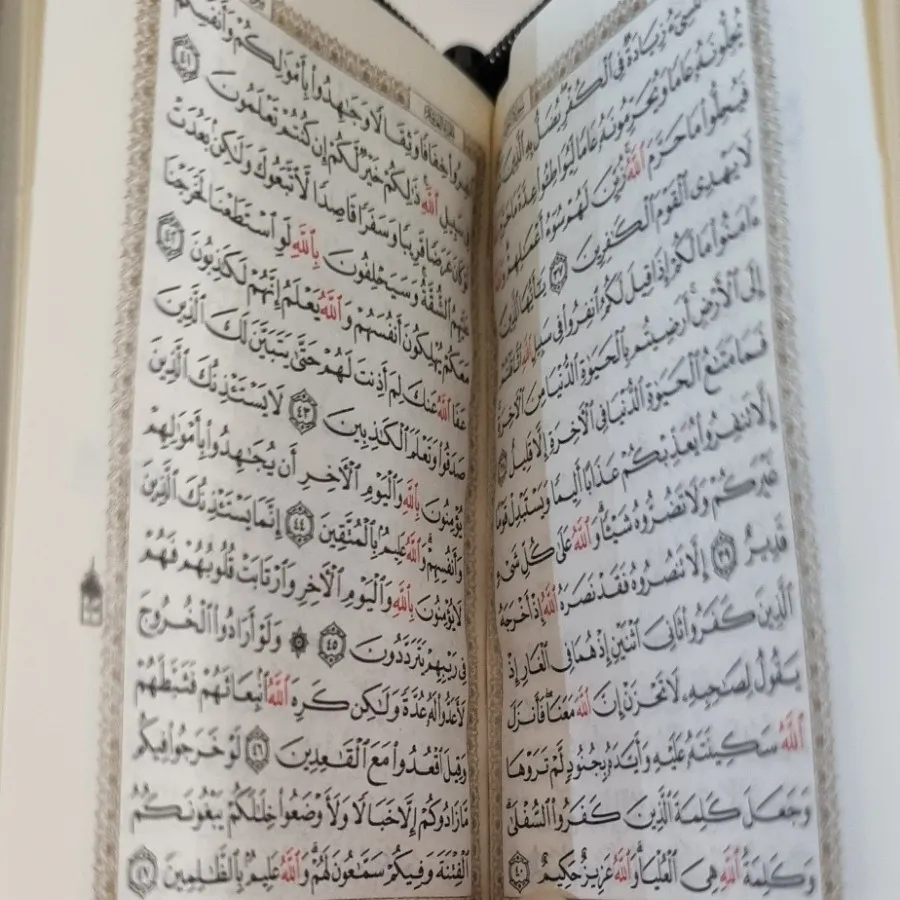 زِيَادَةٌ فِى ٱلْكُفْرِ يُضَلُّ بِهِ ٱلَّذِينَ
يُحِلُّونَهُۥ عَامًا وَيُحَرِّمُونَهُۥ عَامًا لِّيُوَاطِـُٔوا۟ عِدَّةَ مَا حَرَّمَ
فَيُحِلُّوا۟ مَا حَرَّمَ ٱللَّهُ ۚ زُيِّنَ لَهُمْ سُوٓءُ أَعْمَٰلِهِمْ
لَا يَهْدِى ٱلْقَوْمَ ٱلْكَٰفِرِينَ ٣٧ يَٰٓأَيُّهَا ٱلَّذِينَ
ءَامَنُوا۟ مَا لَكُمْ إِذَا قِيلَ لَكُمُ ٱنفِرُوا۟ فِى سَبِيلِ ٱللَّهِ ٱثَّاقَلْتُمْ
إِلَى ٱلْأَرْضِ ۚ أَرَضِيتُم بِٱلْحَيَوٰةِ ٱلدُّنْيَا مِنَ ٱلْءَاخِرَةِ ۚ
فَمَا مَتَٰعُ ٱلْحَيَوٰةِ ٱلدُّنْيَا فِى ٱلْءَاخِرَةِ إِلَّا قَلِيلٌ
إِلَّا تَنفِرُوا۟ يُعَذِّبْكُمْ عَذَابًا أَلِيمًا وَيَسْتَبْدِلْ قَوْمًا
غَيْرَكُمْ وَلَا تَضُرُّوهُ شَيْـًٔا ۗ وَٱللَّهُ عَلَىٰ كُلِّ شَىْءٍ
قَدِيرٌ ٣٩ إِلَّا تَنصُرُوهُ فَقَدْ نَصَرَهُ ٱللَّهُ إِذْ أَخْرَجَهُ
ٱلَّذِينَ كَفَرُوا۟ ثَانِىَ ٱثْنَيْنِ إِذْ هُمَا فِى ٱلْغَارِ إِذْ
يَقُولُ لِصَٰحِبِهِۦ لَا تَحْزَنْ إِنَّ ٱللَّهَ مَعَنَا ۖ فَأَنزَلَ
ٱللَّهُ سَكِينَتَهُۥ عَلَيْهِ وَأَيَّدَهُۥ بِجُنُودٍ لَّمْ تَرَوْهَا
وَجَعَلَ كَلِمَةَ ٱلَّذِينَ كَفَرُوا۟ ٱلسُّفْلَىٰ ۗ
وَكَلِمَةُ ٱللَّهِ هِىَ ٱلْعُلْيَا ۗ وَٱللَّهُ عَزِيزٌ حَكِيمٌ ٤٠
ٱنفِرُوا۟ خِفَافًا وَثِقَالًا وَجَٰهِدُوا۟ بِأَمْوَٰلِكُمْ وَأَنفُسِكُمْ
فِى سَبِيلِ ٱللَّهِ ۚ ذَٰلِكُمْ خَيْرٌ لَّكُمْ إِن كُنتُمْ تَعْلَمُونَ ٤١
لَوْ كَانَ عَرَضًا قَرِيبًا وَسَفَرًا قَاصِدًا لَّٱتَّبَعُوكَ وَلَٰكِنۢ بَعُدَتْ
عَلَيْهِمُ ٱلشُّقَّةُ ۚ وَسَيَحْلِفُونَ بِٱللَّهِ لَوِ ٱسْتَطَعْنَا لَخَرَجْنَا
مَعَكُمْ يُهْلِكُونَ أَنفُسَهُمْ وَٱللَّهُ يَعْلَمُ إِنَّهُمْ لَكَٰذِبُونَ ٤٢
عَفَا ٱللَّهُ عَنكَ لِمَ أَذِنتَ لَهُمْ حَتَّىٰ يَتَبَيَّنَ لَكَ ٱلَّذِينَ
صَدَقُوا۟ وَتَعْلَمَ ٱلْكَٰذِبِينَ ٤٣ لَا يَسْتَـْٔذِنُكَ ٱلَّذِينَ
يُؤْمِنُونَ بِٱللَّهِ وَٱلْيَوْمِ ٱلْءَاخِرِ أَن يُجَٰهِدُوا۟ بِأَمْوَٰلِهِمْ
وَأَنفُسِهِمْ ۗ وَٱللَّهُ عَلِيمٌۢ بِٱلْمُتَّقِينَ ٤٤ إِنَّمَا يَسْتَـْٔذِنُكَ ٱلَّذِينَ
لَا يُؤْمِنُونَ بِٱللَّهِ وَٱلْيَوْمِ ٱلْءَاخِرِ وَٱرْتَابَتْ قُلُوبُهُمْ فَهُمْ
فِى رَيْبِهِمْ يَتَرَدَّدُونَ ٤٥ ۞ وَلَوْ أَرَادُوا۟ ٱلْخُرُوجَ
لَأَعَدُّوا۟ لَهُۥ عُدَّةً وَلَٰكِن كَرِهَ ٱللَّهُ ٱنۢبِعَاثَهُمْ فَثَبَّطَهُمْ
وَقِيلَ ٱقْعُدُوا۟ مَعَ ٱلْقَٰعِدِينَ ٤٦ لَوْ خَرَجُوا۟ فِيكُم
مَّا زَادُوكُمْ إِلَّا خَبَالًا وَلَأَوْضَعُوا۟ خِلَٰلَكُمْ يَبْغُونَكُمُ
ٱلْفِتْنَةَ وَفِيكُمْ سَمَّٰعُونَ لَهُمْ ۗ وَٱللَّهُ عَلِيمٌۢ بِٱلظَّٰلِمِينَ ٤٧